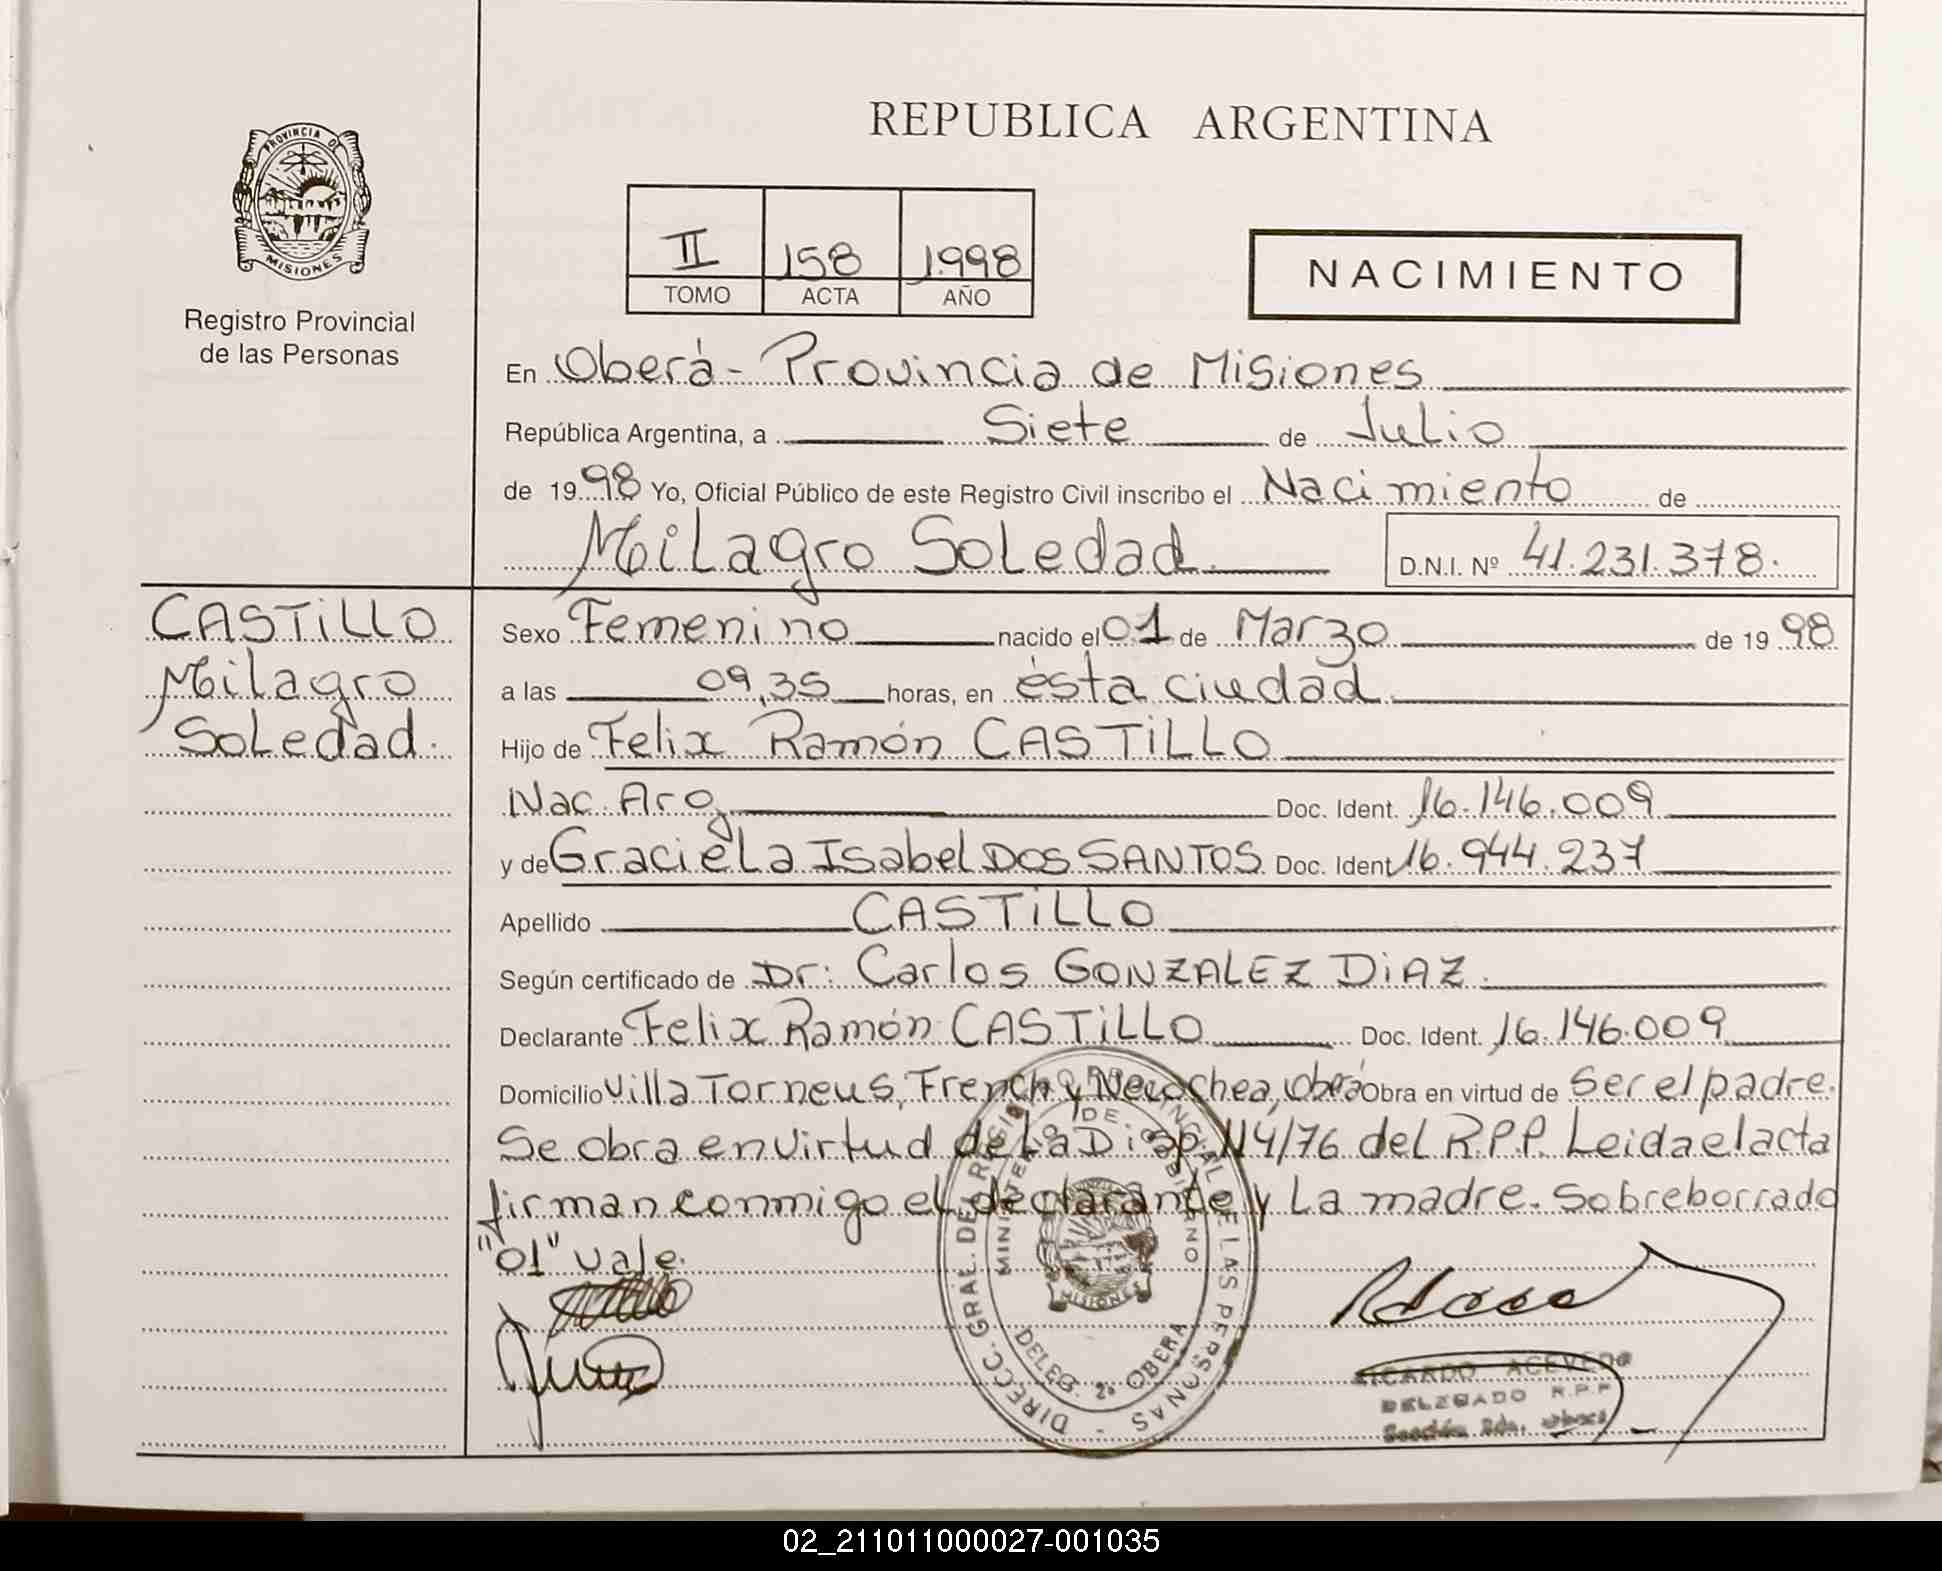 REPUBLICA ARGENTINA
PROVINCIA D
MISIONES
Registro Provincial
de las Personas
II 158 1998
TOMO ACTA AÑO
NACIMIENTO
En Oberá - Provincia de Misiones
República Argentina, a Siete de Julio
de 1998 Yo, Oficial Público de este Registro Civil inscribo el Nacimiento de
Milagro Soledad D.N.I. Nº 41.231.378.
CASTiLLO
Milagro
Soledad.
Sexo Femenino nacido el 01 de Marzo de 1998
a las 09,35 horas, en ésta ciudad
Hijo de Felix Ramón CASTiLLO
Nac. Arg Doc. Ident. 16.146.009
y de Graciela Isabel DOS SANTOS Doc. Ident 16.944.237
Apellido CASTiLLO
Según certificado de Dr: Carlos GONZALEZ DiAZ.
Declarante Felix Ramón CASTiLLO Doc. Ident. 16.146.009
Domicilio Villa Torneus, French y Necochea, Oberá Obra en virtud de Ser el padre.
Se obra en virtud de La Disp. 114/76 del R.P.P. Leida el acta
firman conmigo el declarante y La madre. Sobreborrado
"01" vale.
DIRECC. GRAL. DEL REGISTRO PROVINCIAL DE LAS PERSONAS -
MINISTERIO DE GOBIERNO
MISIONES
DELEG. 2ª OBERA
RICARDO ACEVEDO
DELEGADO R.P.P
Sección 2da. Oberá
02_211011000027-001035